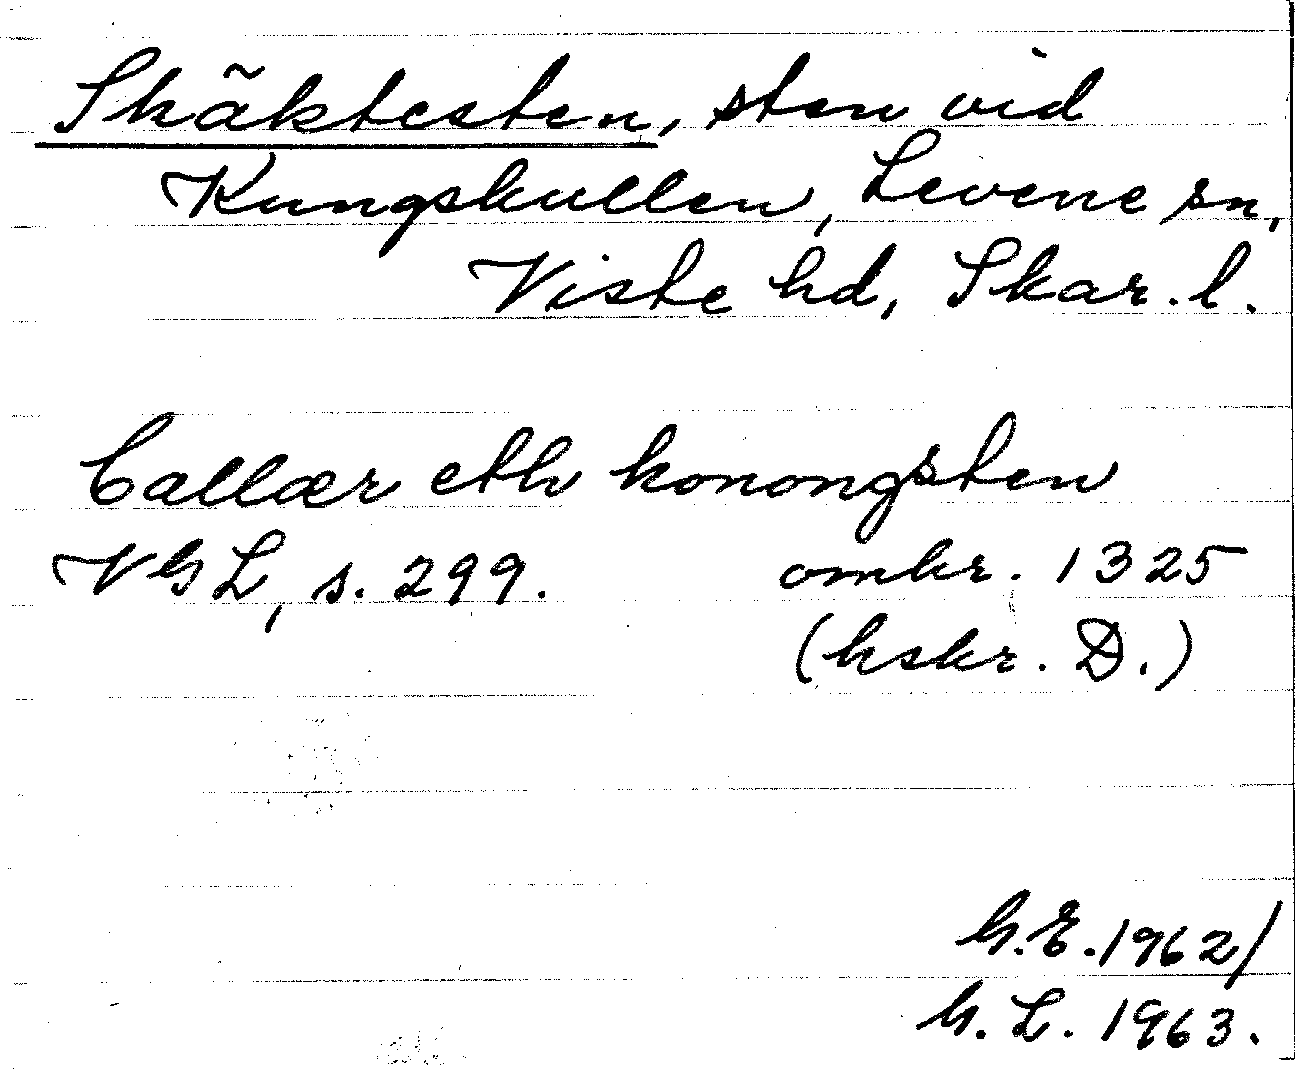 Skäktesten, sten vid
Kungskullen, Levene sn,
Viste hd, Skar. l.
Callær eth konongsten
VGL, s. 299. omkr. 1325
(hskr. D.)
G.E. 1962/
G.L. 1963.